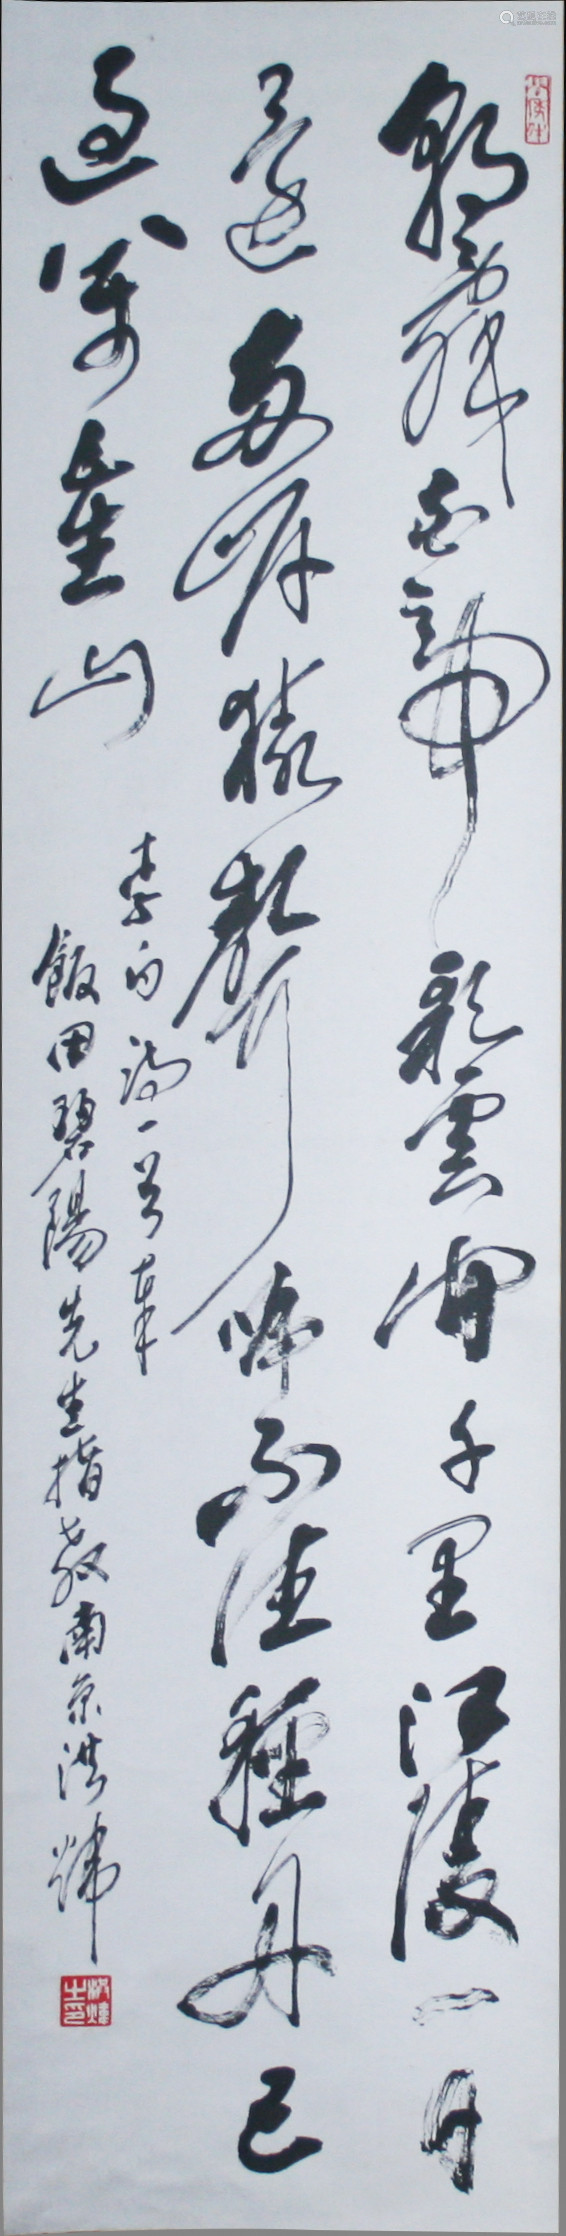 朝辭白帝彩雲間千里江陵一日
還兩岸猿聲啼不住輕舟已
過萬重山
李白詩一首奉
飯田碧陽先生指教南京洪煒